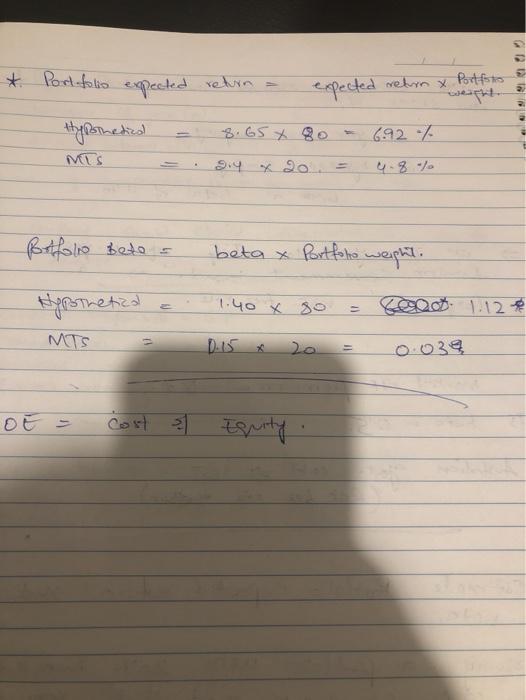 * Portfolio expected return = expected return x Portfolio weight.
Hypothetical = 8.65 x 80 = 6.92 %
MTS = . 2.4 x 20. = 4.8 %
Portfolio beta = beta x Portfolio weight.
Hypothetical = 1.40 x 80 = 1.12
MTS = 0.15 x 20 = 0.03
OE = Cost of Equity.